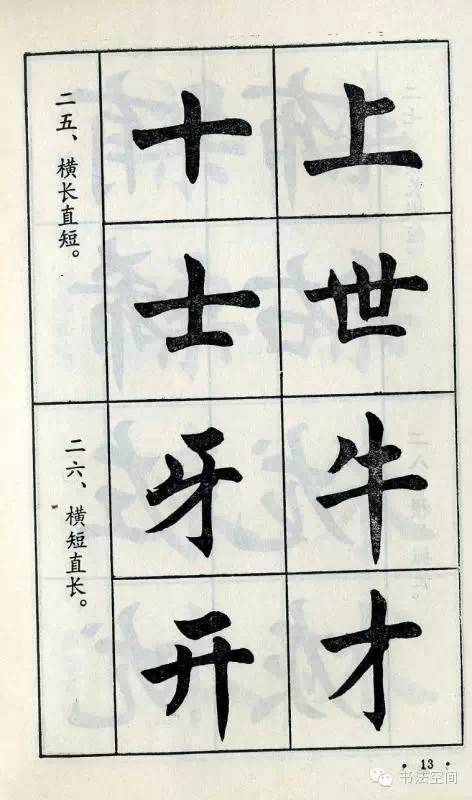 二五、横长直短。
十 上
士 世
二六、横短直长。
牙 牛
开 才
· 13 ·
书法空间